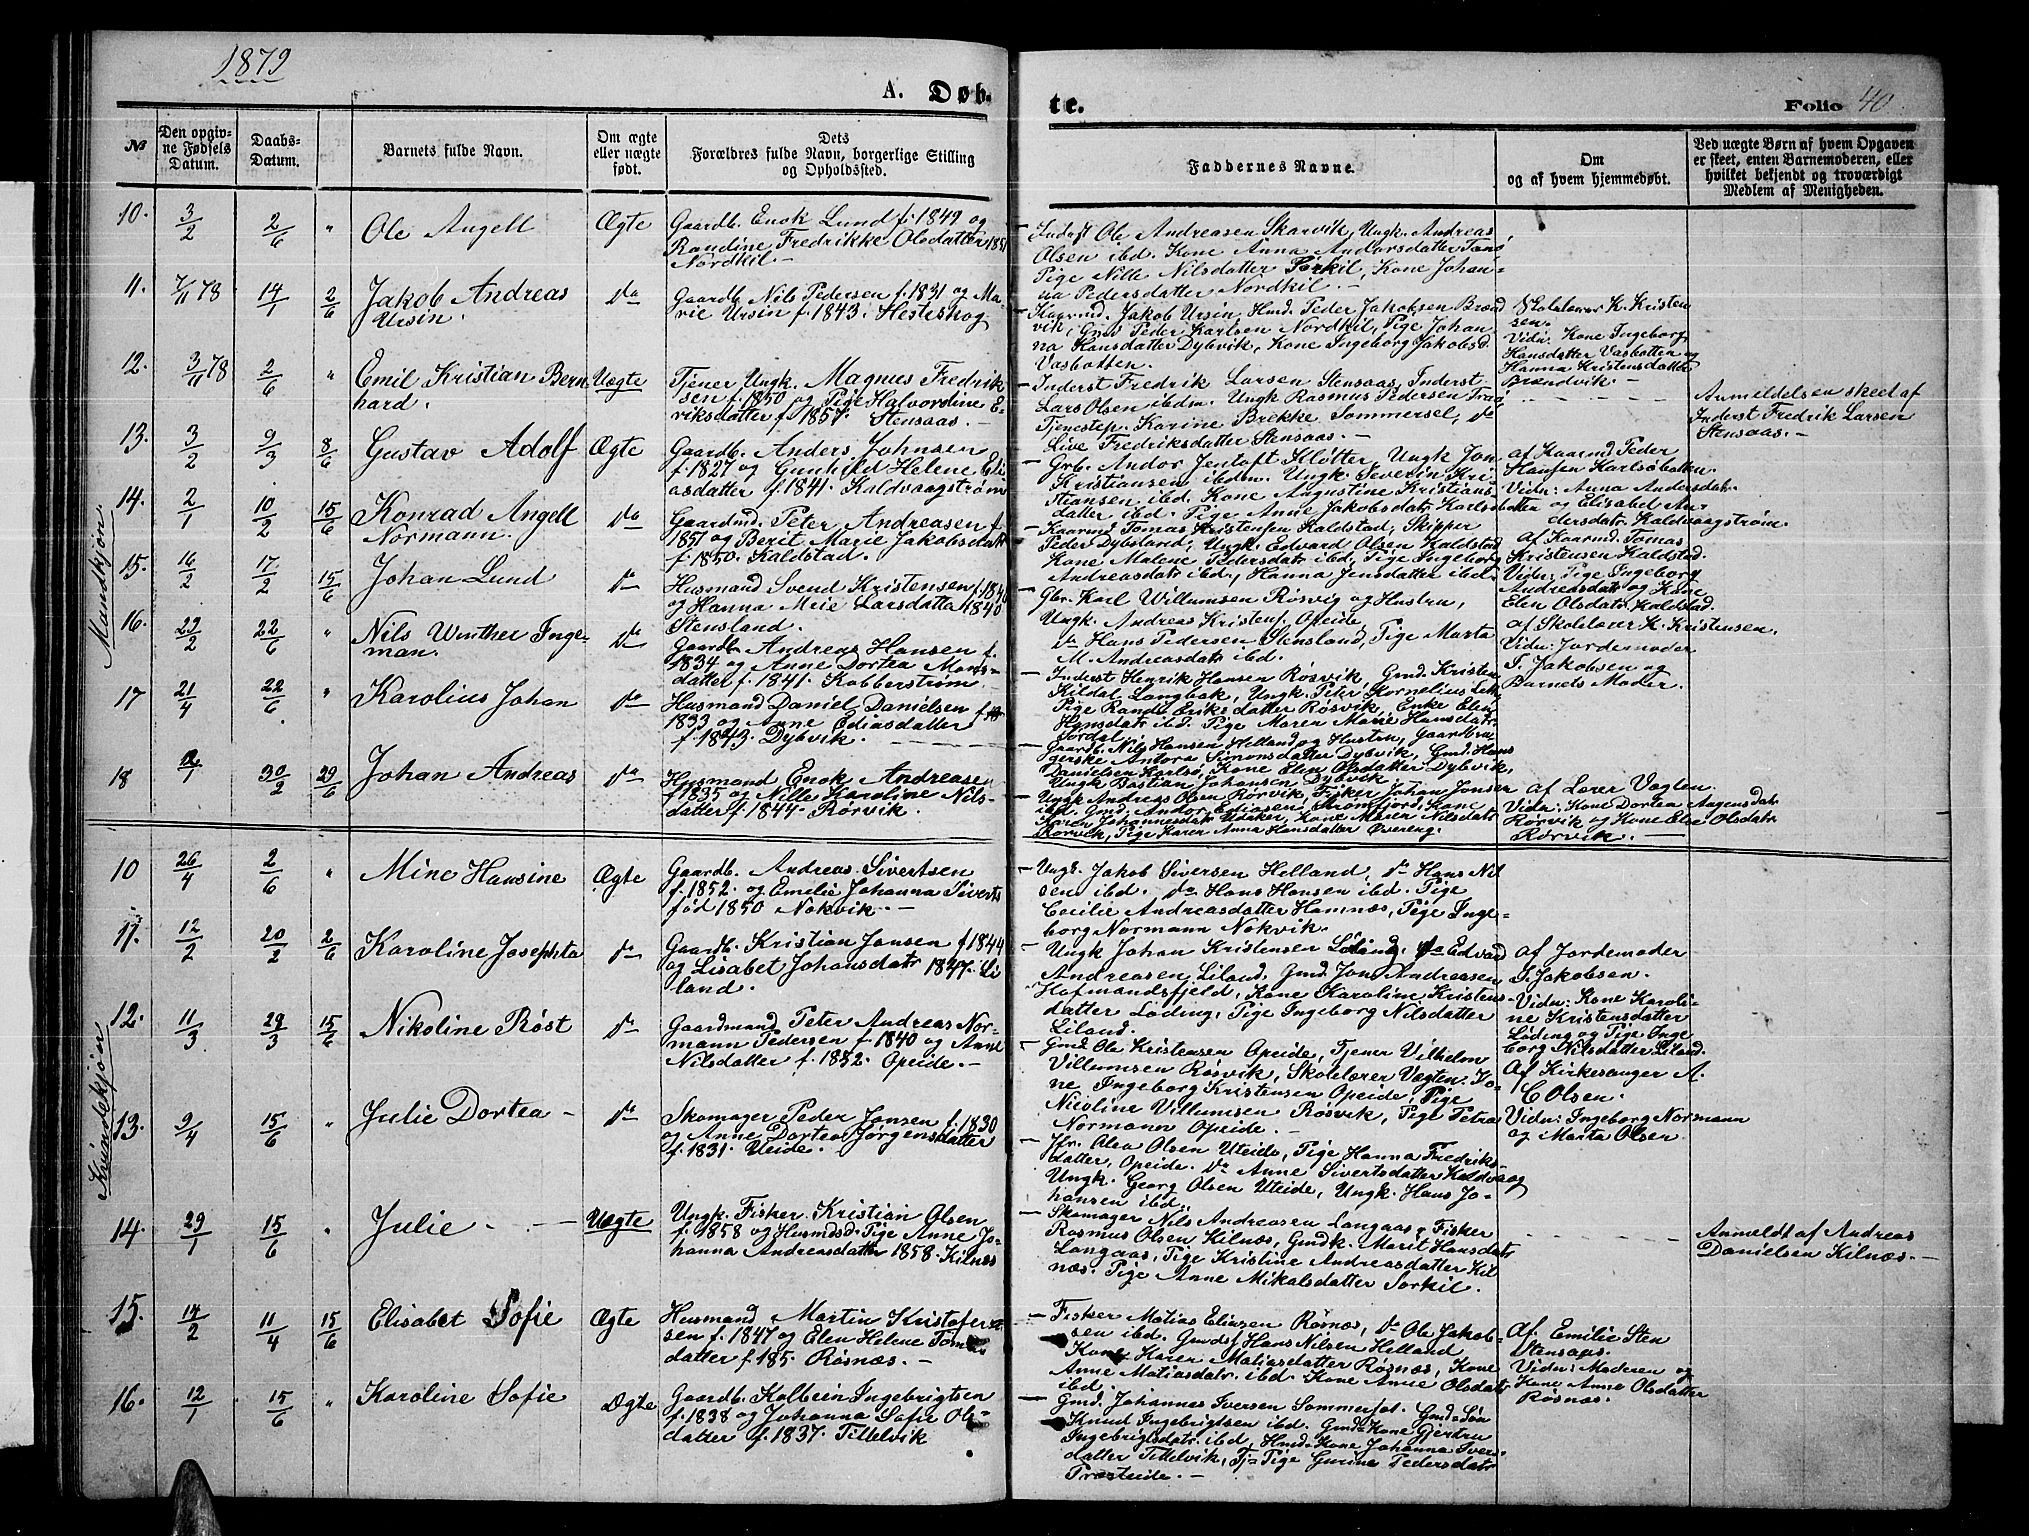 1879
A. Døb-
te.
Folio 40.
No
Den opgiv-
ne Fødsels
Datum.
Daabs-
Datum.
Barnets fulde Navn.
Om ægte
eller uægte
født.
Dets
Forældres fulde Navn, borgerlige Stilling
og Opholdssted.
Faddernes Navne.
Om
og af hvem hjemmedøbt.
Ved uægte Børn af hvem Opgaven
er skeet, enten Barnemoderen, eller
hvilket bekjendt og troværdigt
Medlem af Menigheden.
Mandkjøn
10. 3/2 2/6 " Ole Angell Ægte
Gaardb. Enok Lund f. 1849 og
Randine Fredrikke Olsdatter 1851
Nordkil.-
Inderst Ole Andreasen Skarvik, Ungk. Andreas
Olsen ibd. Kone Anna Andorsdatter
Pige Nille Nilsdatter Sørkil, Kone Johan-
na Pedersdatter Nordkil.-
11. 7/11 78 14/1 2/6 Jakob Andreas
Ursin. do
Gaardb. Nils Pedersen f. 1831 og Ma-
rie Ursin f. 1843. Hesteskog
Kaarmd. Jakob Ursin, Husmd. Peder Jakobsen Brænd
vik, Gmd Peder Karlsen Nordkil, Pige Johan
na Hansdatter Dybvik, Kone Ingeborg Jakobsd.
Vasbotten.
Skolelærer K. Kristen
sen.
Vidn. Kone Ingeborg
Hansdatter Vasbotten og
Hanna Kristensdatter
Brændvik.-
12. 3/11 78 2/6 " Emil Kristian Bern
hard. Uægte
Tjener Ungk. Magnus Fredrik
sen f. 1850 og Pige Halvordine E-
riksdatter f. 1857. Stensaas.-
Inderst Fredrik Larsen Stensaas, Inderst
Lars Olsen ibdm. Ungk Rasmus Pedersen
Tjenestep. Karine Brekke Sommersel, do
Live Fredriksdatter Stensaas.-
Anmeldelsen skeet af
Inderst Fredrik Larsen
Stensaas.-
13. 3/2 9/3 8/6 Gustav Adolf Ægte
Gaardb. Anders Johnsen
f. 1827 og Gunhild Helene Eli
asdatter f. 1841. Kaldvaagstrøm
Grb. Andor Jentoft Kløtter, Ungk Jon
Kristiansen ibdm. Ungk. Severin Kri-
stiansen ibd. Kone Augustine Kristians
datter ibd. Pige Anne Jakobsdatr Karlsøbotten
af Kaarmd Peder
Hansen Karlsøbotten.
Vidn: Anna Andersdatr.
og Elisabet An-
dersdatr. Kaldvaagstrøm.
14. 2/1 10/2 15/6 Konrad Angell
Normann. do
Gaardmd. Peter Andreasen f.
1851 og Berit Marie Jakobsdatr
f. 1850. Kaldstad.
Kaarmd Tomas Kristensen Kaldstad, Skipper
Peder Dybsland, Ungk. Edvard Olsen Kaldstad
Kone Malene Pedersdatr ibd, Pige Ingeborg
Andreasdatr ibd., Hanna Jensdatter ibd.
af Kaarmd. Tomas
Kristensen Kaldstad.
Vidn: Pige Ingeborg
Andreasdatr og Kone
Elen Olsdatr. Kaldstad.
15. 16/2 17/2 15/6 Johan Lund do
Husmand Svend Kristensen f. 1846
og Hanna Mrie Larsdatter 1840
Stensland.
Gbr. Karl Willumsen Røsvig og Hustru,
Ungk. Andreas Kristens. Opeide,
do Hans Pedersen Stensland, Pige Marta
M. Andreasdatr ibd.
af Skolelærer K. Kristensen.
Vidn: Jordemoder
T. Jakobsen og
Barnets Moder.
16. 22/2 22/6 " Nils Winther Inge-
man. do
Gaardb. Andreas Hansen f.
1834 og Anne Dortea Mons-
datter f. 1841. Kobberstrøm
Inderst Henrik Hansen Røsvik, Gmd. Kristen
Kildal Langbak, Ungk. Peter Kornelius
Pige Randi Eriksdatter Røsvik, Enke Elen
Hansdatr ibd. Pige Maren Marie Hansdatr.
17 21/4 22/6 " Karolius Johan do
Husmand Daniel Danielsen f.
1833 og Anne Ediasdatter
f. 1843. Dybvik.
Gaardb. Nils Hansen Helland og Hustru, Gaardbru
gerske Antora Simonsdatter Dybvik, Gmd. Hans
Danielsen Karlsø, Kone Elen Olsdatter Dybvik,
Ungk Bastian Johansen Dybvik
18 30/2 29/6 Johan Andreas do
Husmand Enok Andreasen
f. 1835 og Nille Karoline Nils-
datter f. 1844. Rørvik.
Ungk Andreas Olsen Rørvik, Fisker Johan Jensen
ibd, Gmd. Andor Ediasen Strømfjord, Kone
Karen Johannesdatr, Kone Maren Nilsdatr
Rørvik, Pige Karen Anna Hansdatter Øvereng.
af Lærer Vagten.
Vidn: Kone Dortea Aagensdatr
Rørvik og Kone Else Olsdatr.
Rørvik.-
Kvindekjøn
10 26/4 2/6 " Mine Hansine Ægte
Gaardb. Andreas Sivertsen
f. 1852. og Emilie Johanna Siverts
fød 1850 Nokvik.-
Ungk. Jakob Siversen Helland, do Hans Nil
sen ibd. do Hans Hansen ibd. Pige
Cecilie Andreasdatter Hamnæs, Pige Inge-
borg Normann Nokvik.
11. 12/2 20/2 2/6 Karoline Josephta do
Gaardb. Kristian Jansen f 1844
og Lisabet Johansdatr 1847. Li
land.
Ungk Johan Kristensen Løding, do Edvard
Andreasen Liland, Gmd. Jon Andreasen
Hofmandsfjeld, Kone Karoline Kristens-
datter Løding, Pige Ingeborg Nilsdatter
Liland.
af Jordemoder
T. Jakobsen.
Vidn: Kone Karoli-
ne Kristensdatter
Løding og Pige Inge-
borg Nilsdatter Liland.
12. 11/3 29/3 15/6 Nikoline Røst do
Gaardmand Peter Andreas Nor-
mann Pedersen f 1840 og Anne
Nilsdatter f. 1852. Opeide.-
Gmd. Ole Kristensen Opeide, Tjener Vilhelm
Villumsen Røsvik, Skolelærer Vagten. Ko-
ne Ingeborg Kristensen Opeide, Pige
Nicoline Villumsen Røsvik, Pige Petra
Normann Opeide.-
Af Kirkesanger A.
C Olsen.
Vidn: Ingeborg Normann
og Marta Olsen.
13. 9/4 15/6 " Julie Dortea- do
Skomager Peder Jansen f. 1830
og Anne Dortea Jørgensdatter
f. 1831. Uteide.-
Jfr. Olea Olsen Uteide, Pige Hanna Fredriks-
datter, Opeide. do Anne Sivertsdatter Kaldvaag
Ungk. Georg Olsen Uteide, Ungk. Hans Jo-
hansen ibd.
14. 29/1 15/6 " Julie.- Uægte
Ungk. Fisker Kristian Olsen
f. 1858 og Husmdsd. Pige Anne Jo-
hanna Andreasdatter 1858. Kilnæs
Skomager Nils Andreasen Langaas, Fisker
Rasmus Olsen Kilnæs, Gmdk. Marit Hansdatr
Langaas, Pige Kristine Andreasdatter Kil
næs. Pige Anne Mikalsdatter Sørkil.
Anmeldt af Andreas
Danielsen Kilnæs.-
15. 14/2 11/4 15/6 Elisabet Sofie Ægte
Husmand Martin Kristofer
sen f. 1847 og Elen Helene
datter f. 185. Røsnæs.-
Fisker Matias Eliasen Røsnæs, do Ole Jakob
sen ibd. Gmds. Hans Nilsen Helland
Kone Karen Matiasdatter Røsnæs, Kone
Anne Matiasdatr. ibd. Kone Anne Olsdatr
ibd.
Af Emilie Sten
Stensaas.
Vidn: Moderen og
Kone Anne Olsdatter
Røsnæs.
16. 12/1 15/6 " Karoline Sofie Ægte
Gaardb. Kolbein Ingebrigtsen
f. 1838 og Johanna Sofie Ols-
datter f. 1837. Tittelvik
Gmd. Johannes Iversen Sommerset. Gmds Søn
Knud Ingebrigtsen ibd. Gmds Kone Gjertru
Ingebrigtsdatr. ibd, Husmd Kone Johanna Iver-
datter Tittelvik, Tj. Pige Gurine Pedersdatr
Præsteide.-